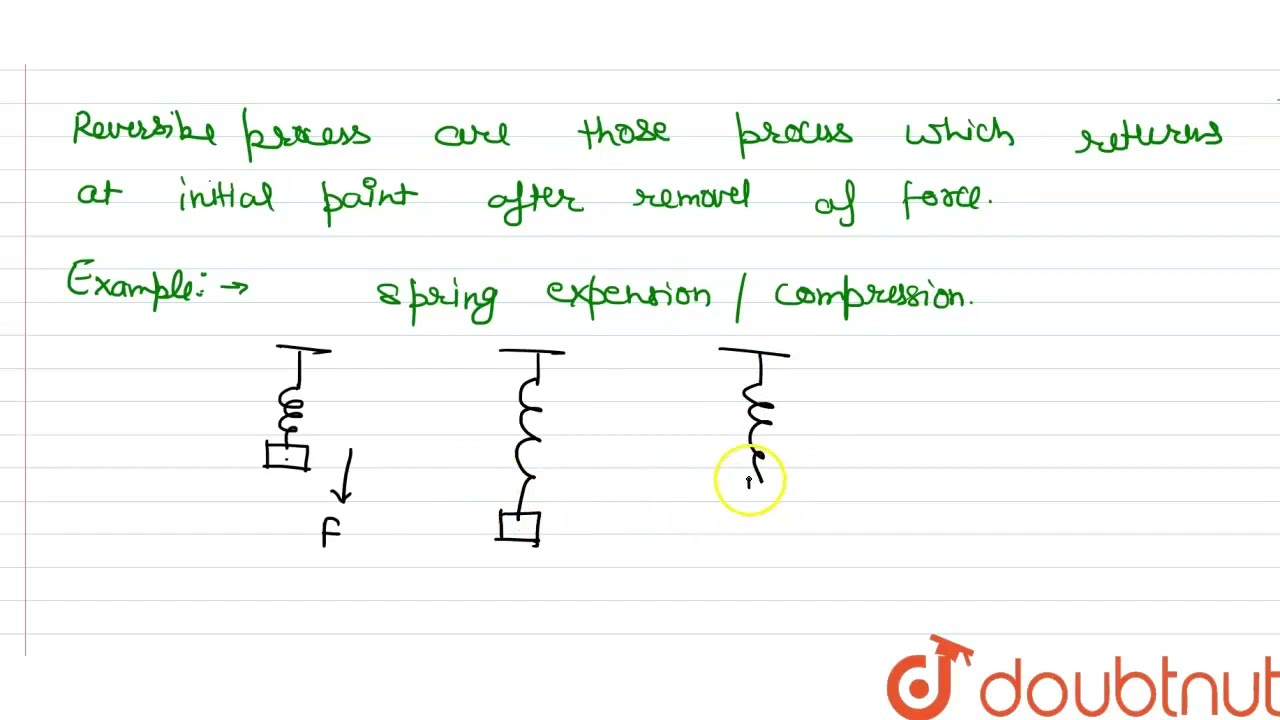 Reversible process are those process which returns
at initial paint after removel of force.
Example:→ spring expension / compression.
F
doubtnut